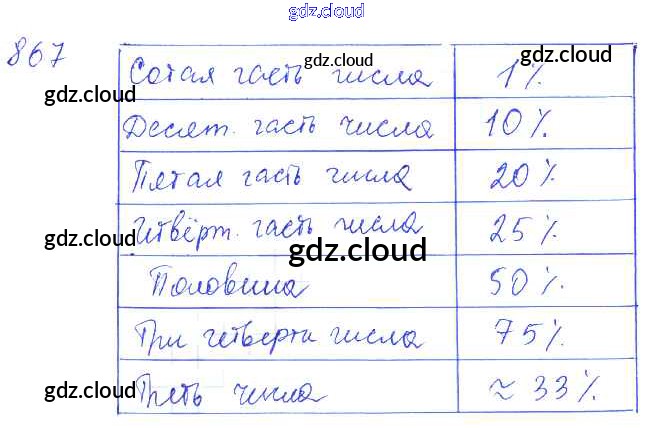 gdz.cloud
867
Сотая часть числа 1%
Десят. часть числа 10%
Пятая часть числа 20%
Четвёрт. часть числа 25%
Половина 50%
Три четверти числа 75%
Треть числа ≈ 33%
gdz.cloud
gdz.cloud
gdz.cloud
gdz.cloud
gdz.cloud
gdz.cloud
gdz.cloud
gdz.cloud